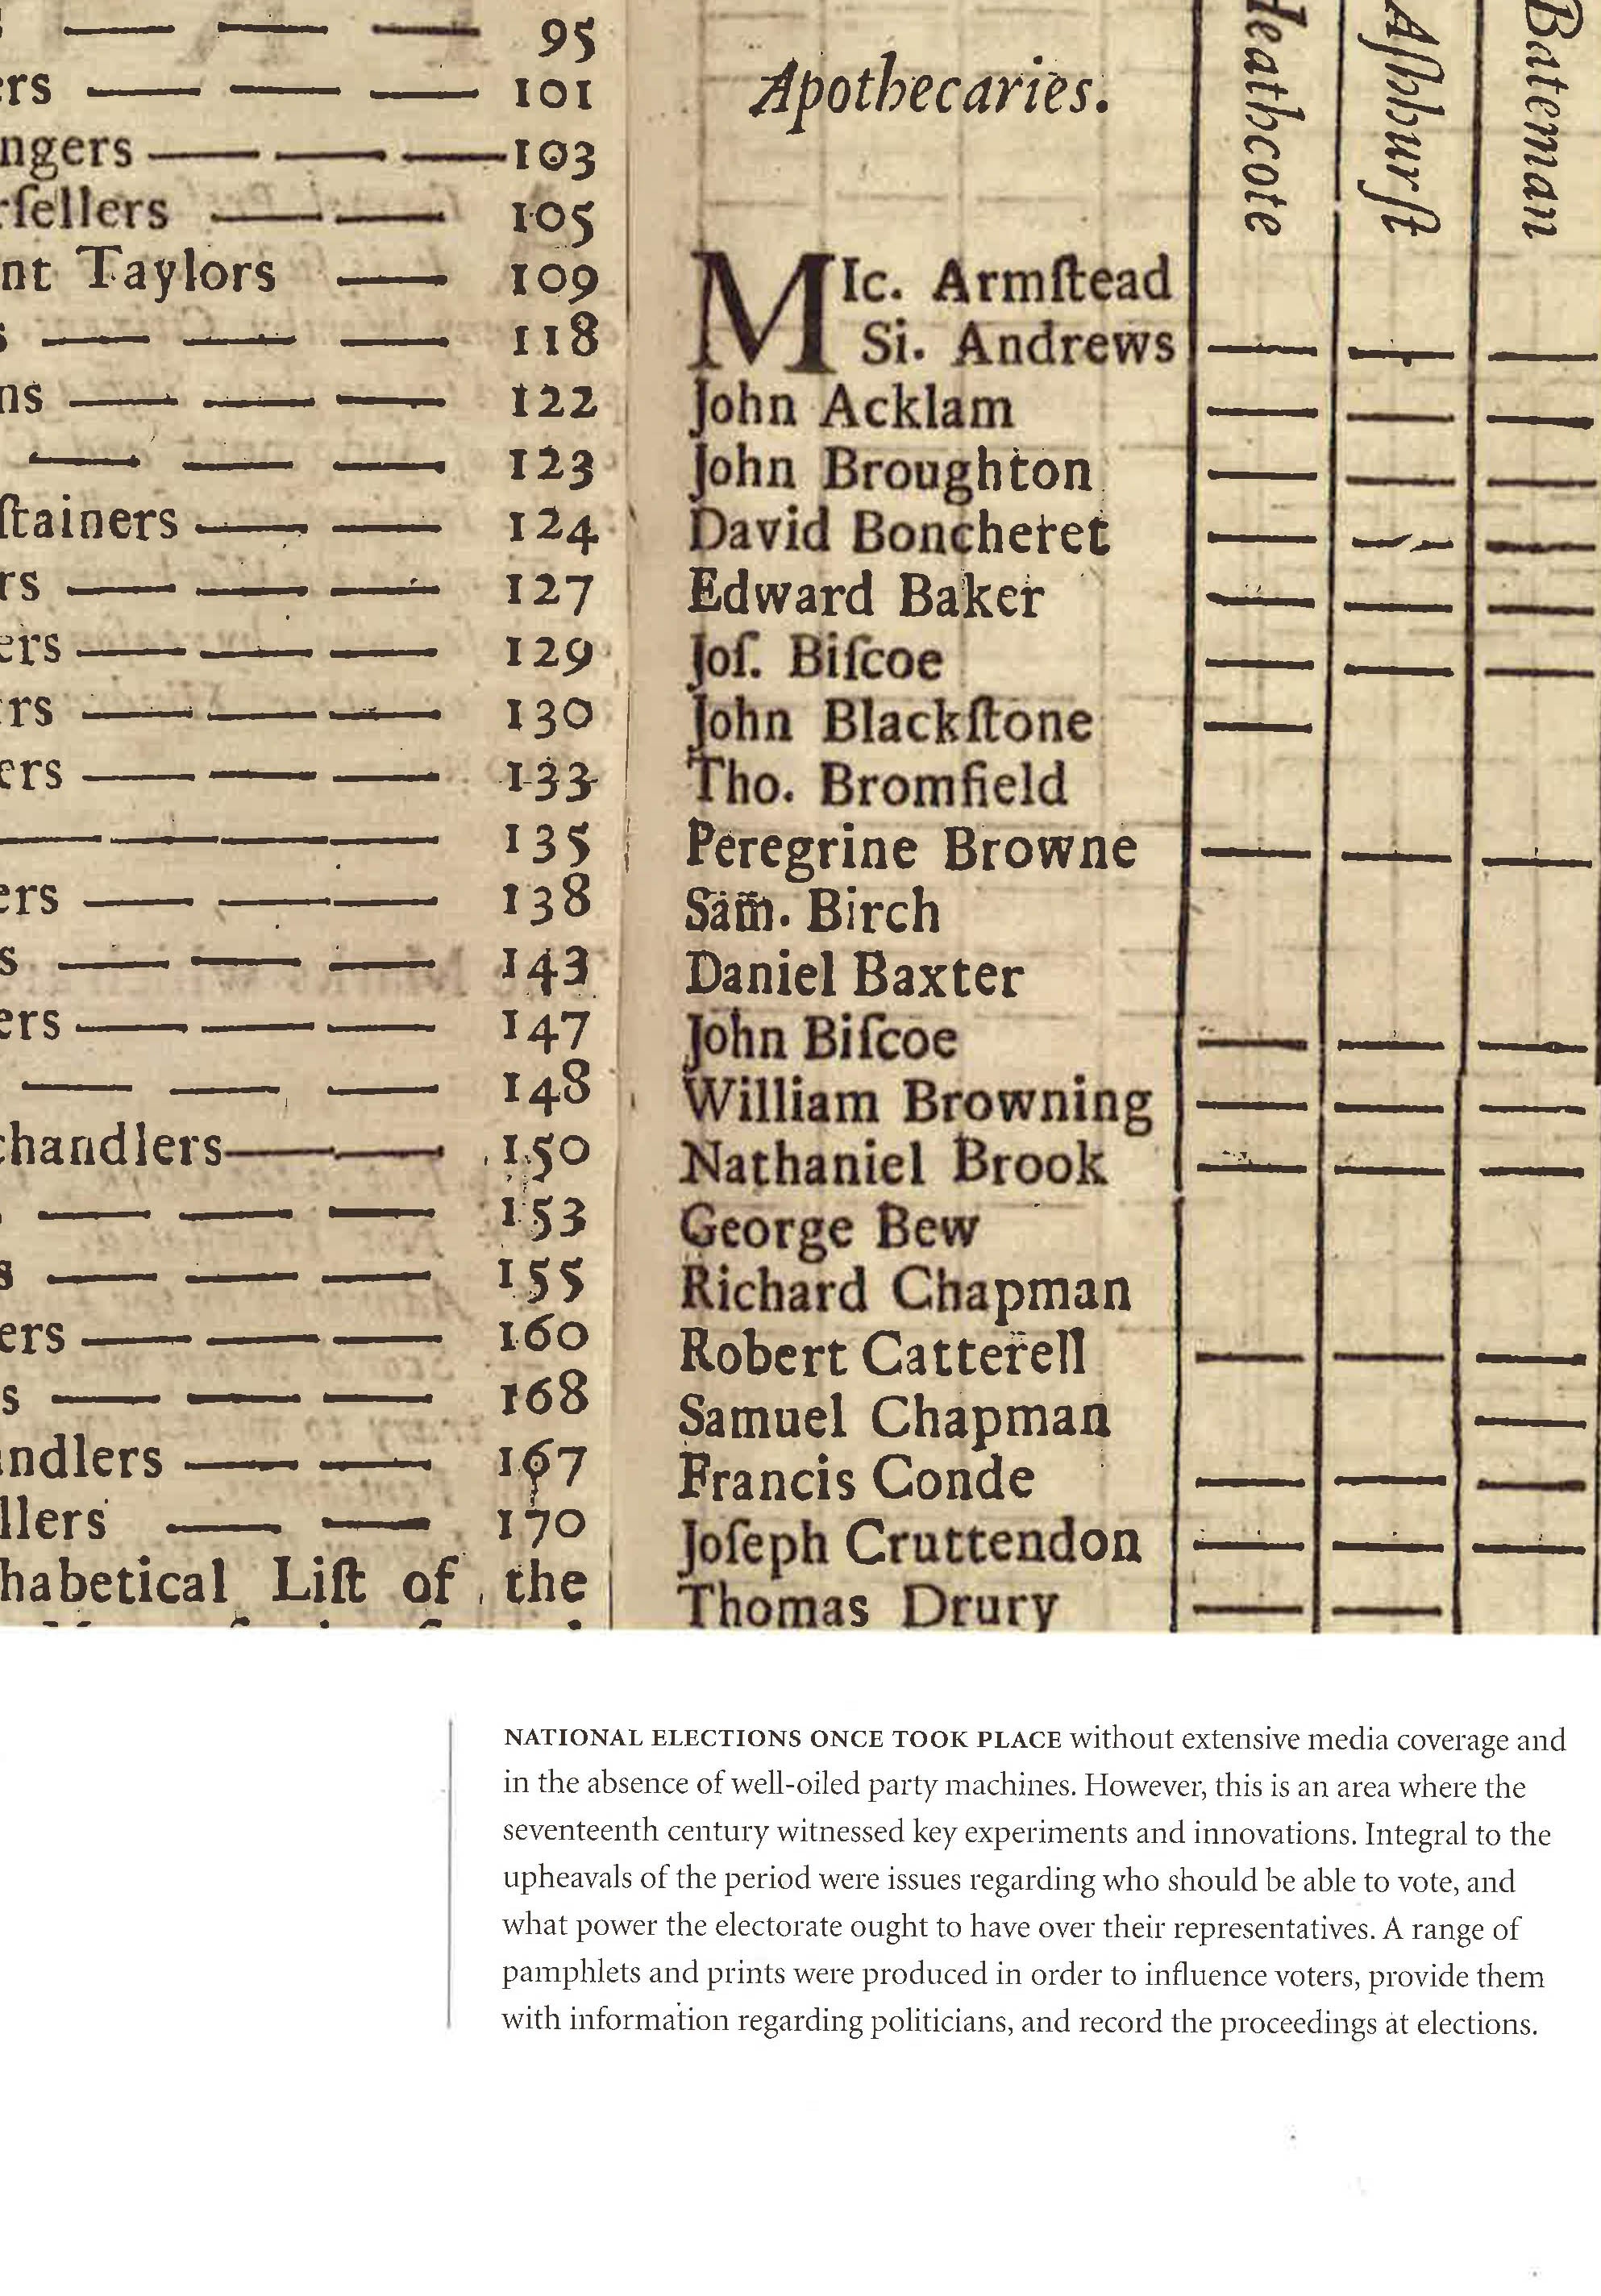 95
rs — — — 101
ngers — — — 103
rſellers — — 105
nt Taylors — 109
s — — — 118
ns — — — 122
— — — 123
ſtainers — — 124
rs — — — 127
ers — — — 129
rs — — — 130
ers — — — 133
— — — — 135
ers — — — 138
s — — — 143
ers — — — 147
— — — 148
chandlers — — 150
— — — 153
s — — — 155
ers — — — 160
s — — — 168
ndlers — — 167
llers — — 170
habetical Liſt of the
Apothecaries.
Heathcote
Aſhhurſt
Bateman
MIc. Armſtead
Si. Andrews — — —
John Acklam — — —
John Broughton — — —
David Boncheret — — —
Edward Baker — — —
Joſ. Biſcoe — — —
John Blackſtone —
Tho. Bromfield
Peregrine Browne — — —
Sam. Birch
Daniel Baxter
John Biſcoe — — —
William Browning — — —
Nathaniel Brook — — —
George Bew
Richard Chapman
Robert Catterell — — —
Samuel Chapman —
Francis Conde — — —
Joſeph Cruttendon — — —
Thomas Drury — —
NATIONAL ELECTIONS ONCE TOOK PLACE without extensive media coverage and
in the absence of well-oiled party machines. However, this is an area where the
seventeenth century witnessed key experiments and innovations. Integral to the
upheavals of the period were issues regarding who should be able to vote, and
what power the electorate ought to have over their representatives. A range of
pamphlets and prints were produced in order to influence voters, provide them
with information regarding politicians, and record the proceedings at elections.